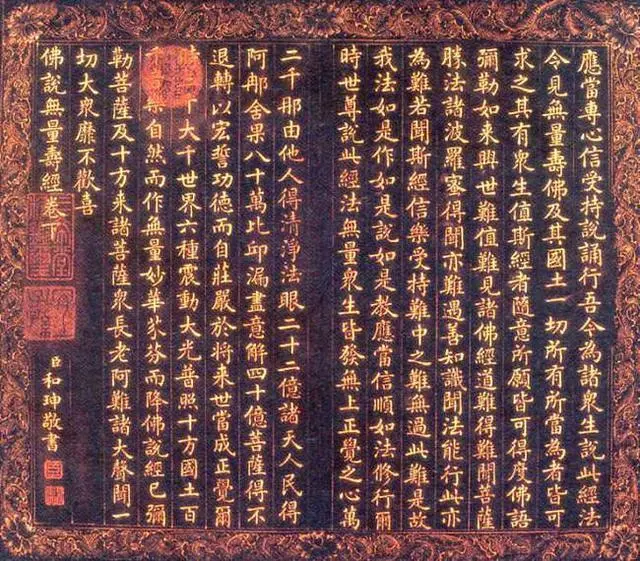 應當專心信受持說誦行吾今為諸衆生說此經法
今見無量壽佛及其國土一切所有所當為者皆可
求之其有衆生值斯經者隨意所願皆可得度佛語
彌勒如來興世難值難見諸佛經道難得難聞菩薩
勝法諸波羅蜜得聞亦難遇善知識聞法能行此亦
為難若聞斯經信樂受持難中之難無過此難是故
我法如是作如是說如是教應當信順如法修行爾
時世尊說此經法無量衆生皆發無上正覺之心萬
二千那由他人得清淨法眼二十二億諸天人民得
阿那舍果八十萬比邱漏盡意解四十億菩薩得不
退轉以宏誓功德而自莊嚴於將来世當成正覺爾
大千世界六種震動大光普照十方國土百
樂自然而作無量妙華芬而降佛說經已彌
勒菩薩及十方來諸菩薩衆長老阿難諸大聲聞一
切大衆靡不歡喜
佛說無量壽經卷下
臣和珅敬書